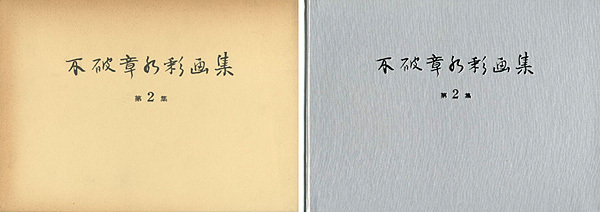 不破章水彩画集
第2集
不破章水彩画集
第2集